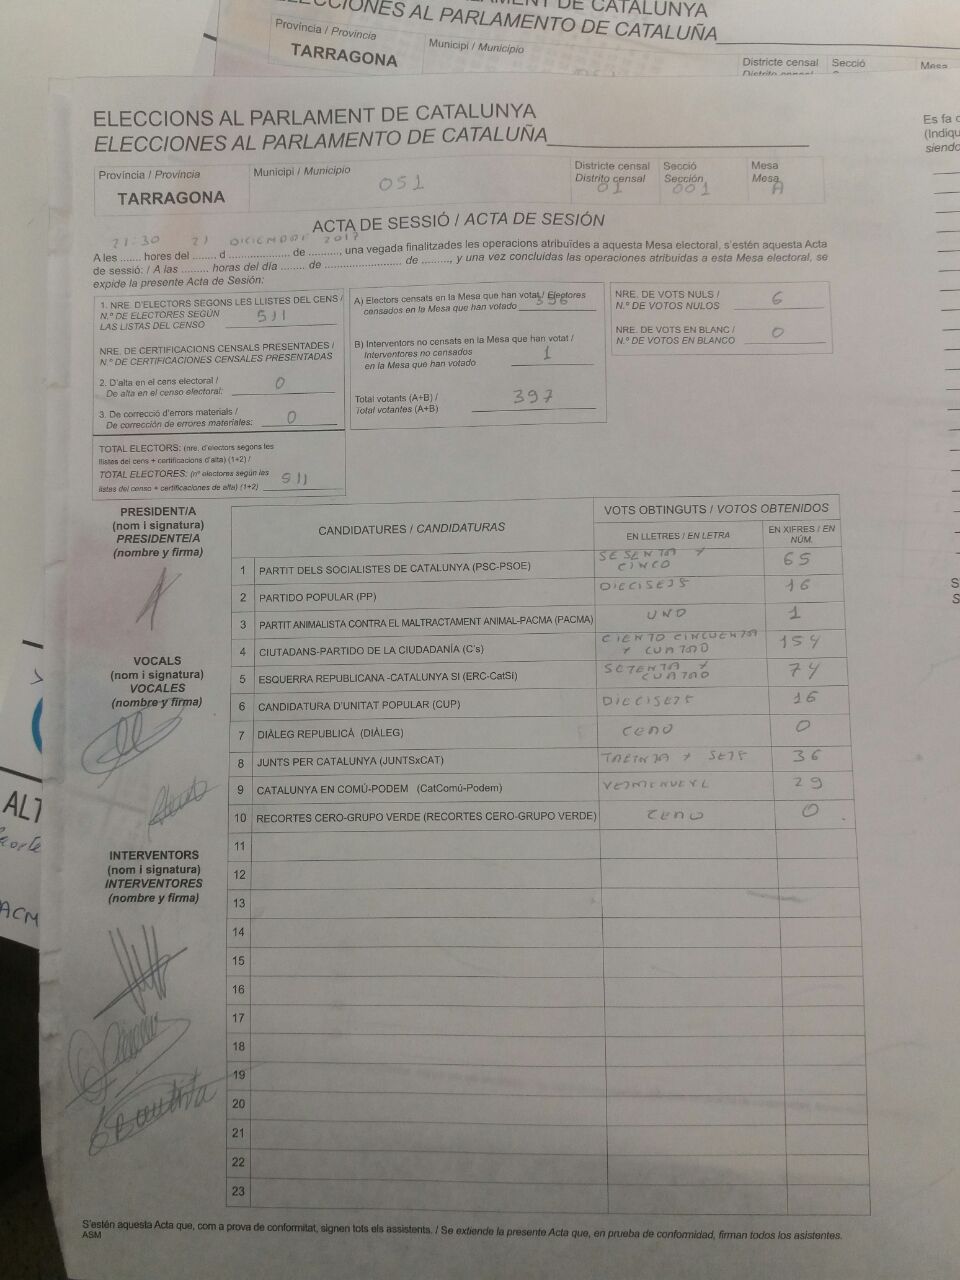 ELECCIONS AL PARLAMENT DE CATALUNYA
ELECCIONES AL PARLAMENTO DE CATALUÑA
Província / Provincia
TARRAGONA
Municipi / Municipio
Districte censal
Secció
Mesa
ELECCIONS AL PARLAMENT DE CATALUNYA
ELECCIONES AL PARLAMENTO DE CATALUÑA
Província / Provincia
TARRAGONA
Municipi / Municipio
051
Districte censal
Distrito censal
01
Secció
Sección
001
Mesa
Mesa
A
ACTA DE SESSIÓ / ACTA DE SESIÓN
21:30 21 DICIEMBRE 2017
A les ....... hores del ........ d ................... de .........., una vegada finalitzades les operacions atribuïdes a aquesta Mesa electoral, s'estén aquesta Acta
de sessió: / A las ......... horas del día ........ de ........................ de ........., y una vez concluidas las operaciones atribuidas a esta Mesa electoral, se
expide la presente Acta de Sesión:
1. NRE. D'ELECTORS SEGONS LES LLISTES DEL CENS /
N.º DE ELECTORES SEGÚN
LAS LISTAS DEL CENSO
511
NRE. DE CERTIFICACIONS CENSALS PRESENTADES /
N.º DE CERTIFICACIONES CENSALES PRESENTADAS
2. D'alta en el cens electoral /
De alta en el censo electoral:
0
3. De correcció d'errors materials /
De corrección de errores materiales:
0
TOTAL ELECTORS: (nre. d'electors segons les
llistes del cens + certificacions d'alta) (1+2) /
TOTAL ELECTORES: (nº electores según les
listes del censo + certificaciones de alta) (1+2)
511
A) Electors censats en la Mesa que han votat / Electores
censados en la Mesa que han votado
396
B) Interventors no censats en la Mesa que han votat /
Interventores no censados
en la Mesa que han votado
1
Total votants (A+B) /
Total votantes (A+B)
397
NRE. DE VOTS NULS /
N.º DE VOTOS NULOS
6
NRE. DE VOTS EN BLANC /
N.º DE VOTOS EN BLANCO
0
PRESIDENT/A
(nom i signatura)
PRESIDENTE/A
(nombre y firma)
VOCALS
(nom i signatura)
VOCALES
(nombre y firma)
INTERVENTORS
(nom i signatura)
INTERVENTORES
(nombre y firma)
CANDIDATURES / CANDIDATURAS
VOTS OBTINGUTS / VOTOS OBTENIDOS
EN LLETRES / EN LETRA
EN XIFRES / EN
NÚM.
1 PARTIT DELS SOCIALISTES DE CATALUNYA (PSC-PSOE) SESENTA Y CINCO 65
2 PARTIDO POPULAR (PP) DIECISEIS 16
3 PARTIT ANIMALISTA CONTRA EL MALTRACTAMENT ANIMAL-PACMA (PACMA) UNO 1
4 CIUTADANS-PARTIDO DE LA CIUDADANÍA (C's) CIENTO CINCUENTA Y CUATRO 154
5 ESQUERRA REPUBLICANA -CATALUNYA SI (ERC-CatSí) SETENTA Y CUATRO 74
6 CANDIDATURA D'UNITAT POPULAR (CUP) DIECISEIS 16
7 DIÀLEG REPUBLICÀ (DIÀLEG) CERO 0
8 JUNTS PER CATALUNYA (JUNTSxCAT) TREINTA Y SEIS 36
9 CATALUNYA EN COMÚ-PODEM (CatComú-Podem) VEINTINUEVE 29
10 RECORTES CERO-GRUPO VERDE (RECORTES CERO-GRUPO VERDE) CERO 0
11
12
13
14
15
16
17
18
19
20
21
22
23
S'estén aquesta Acta que, com a prova de conformitat, signen tots els assistents. / Se extiende la presente Acta que, en prueba de conformidad, firman todos los asistentes.
ASM
Es fa c
(Indiqu
siendo
ALT
ACM